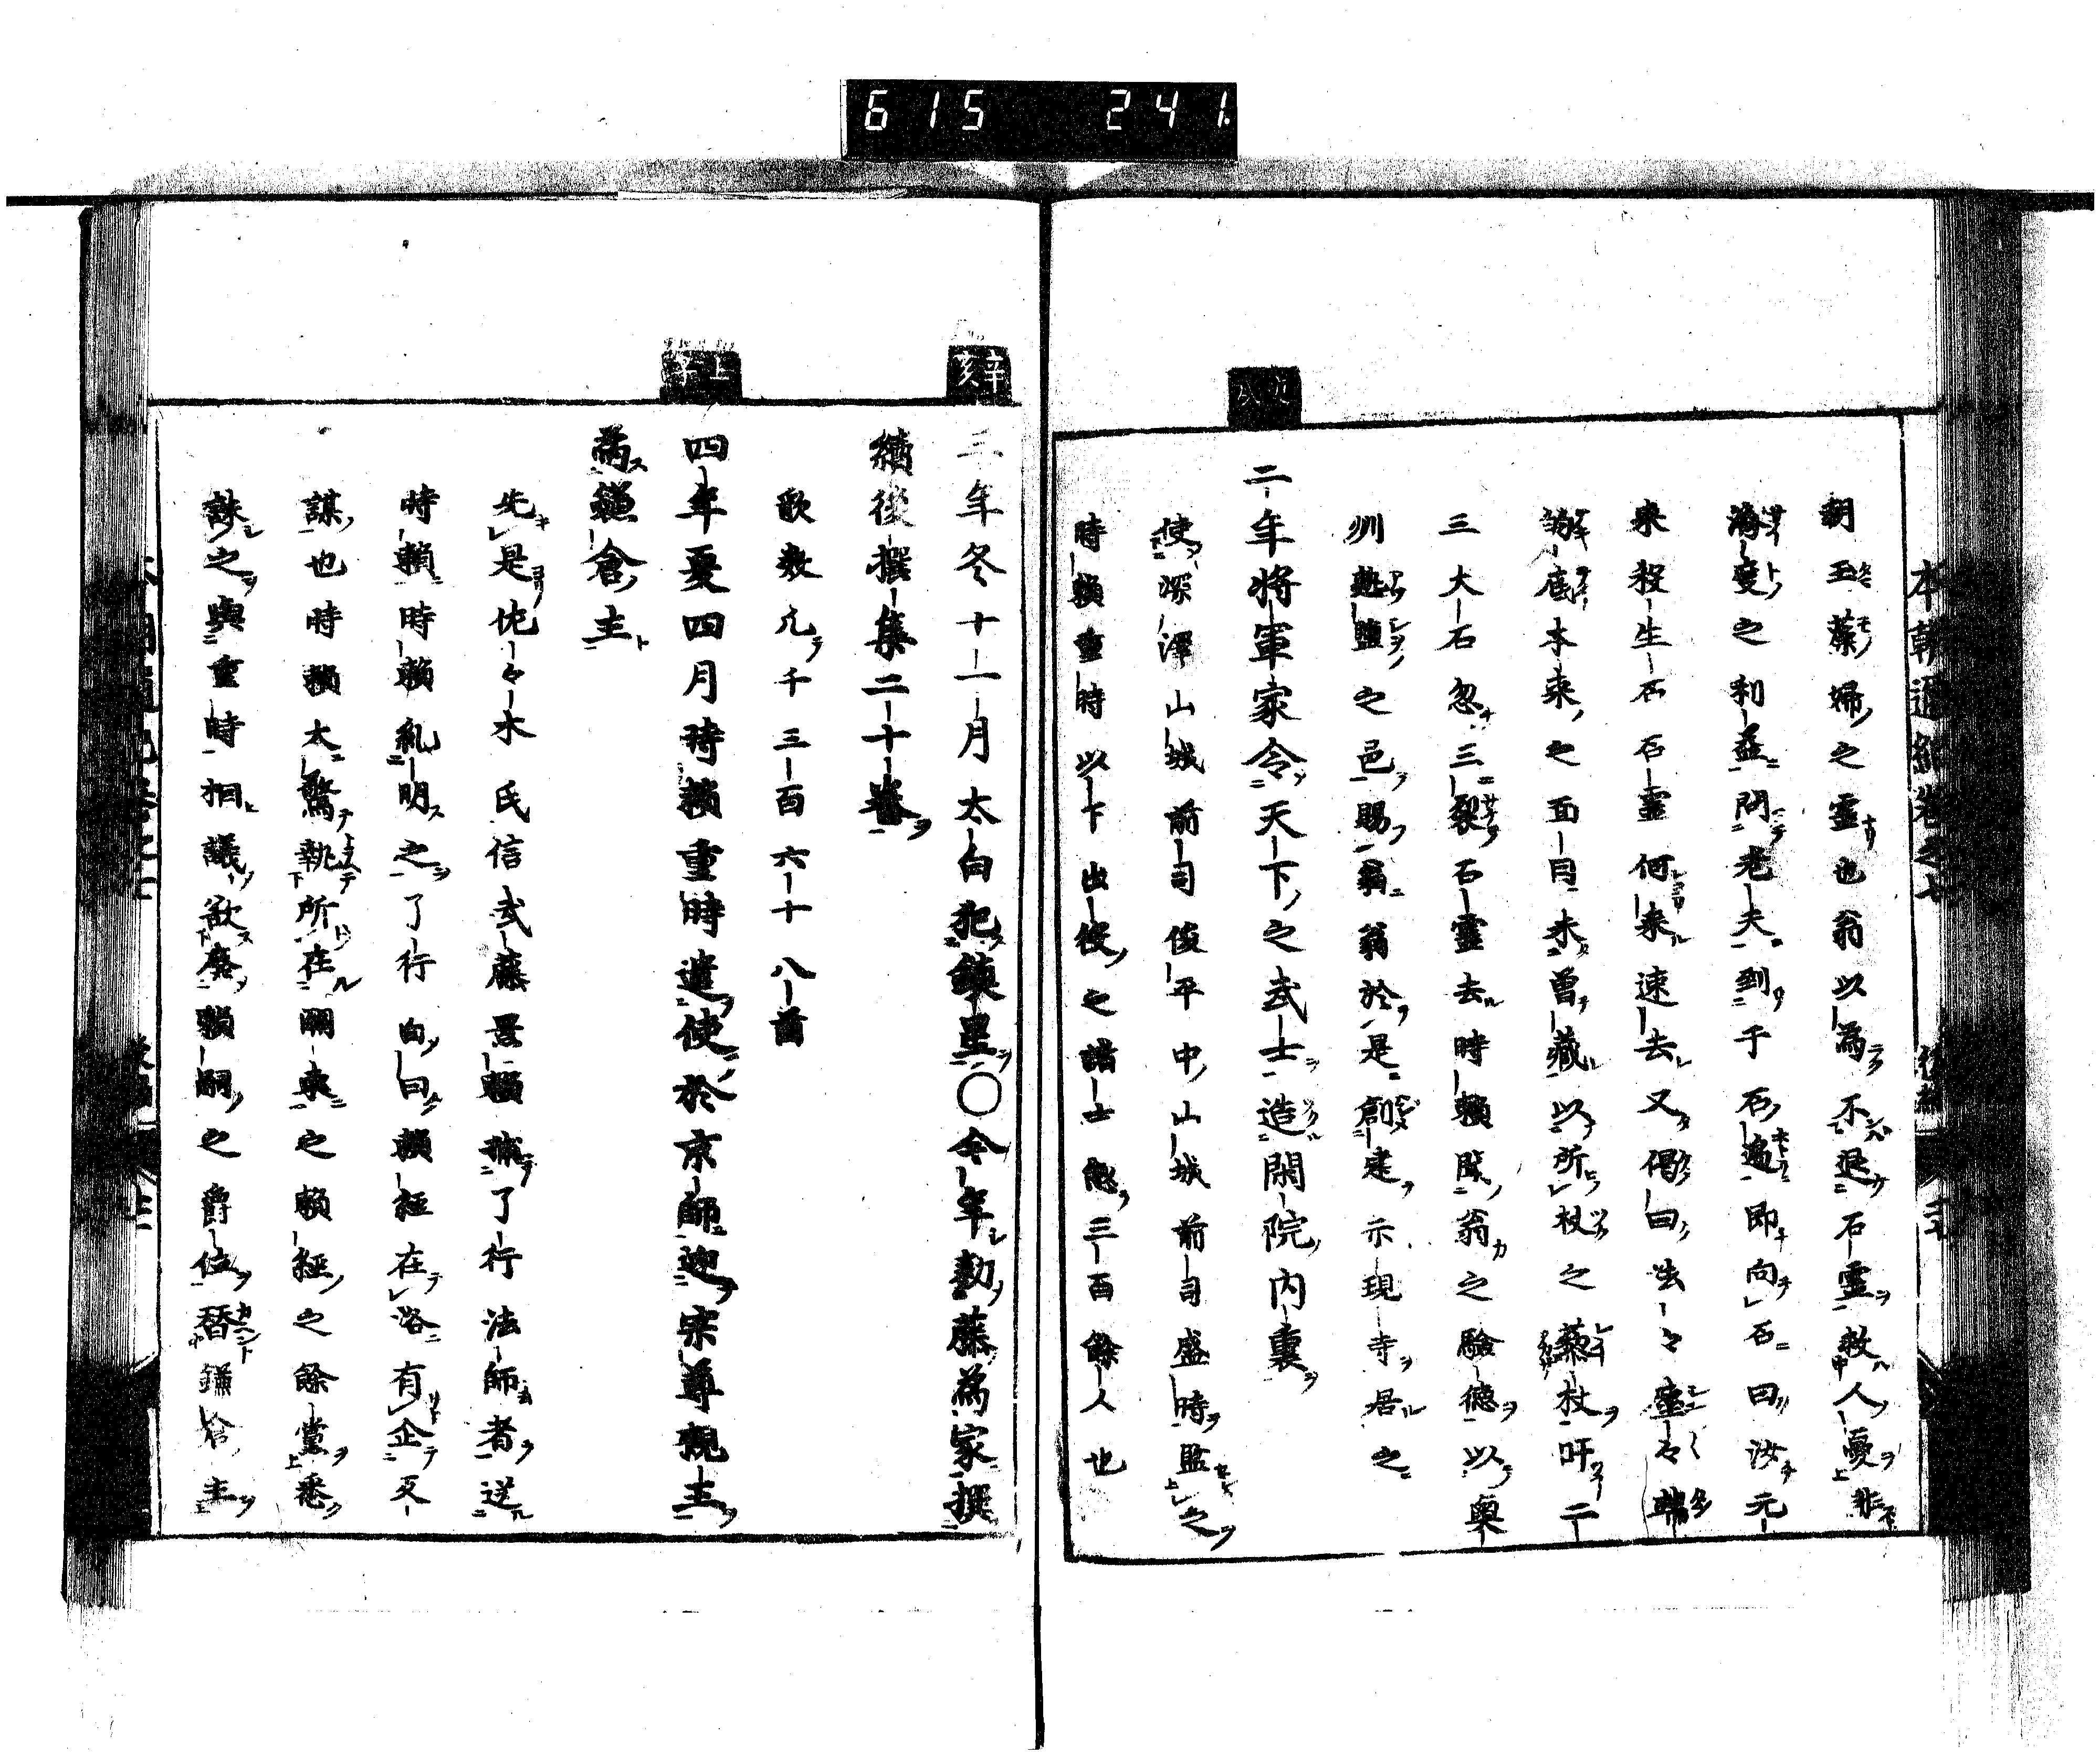 615 241
本朝通紀卷之七
朝玉藻婦之靈也翁以為不退石靈救人憂非
海度之利益問老夫到于石邊即向石曰汝元
來殺生石石靈何来速去又偈曰法々塵々端
的底本来之面目未曽藏以所杖之藜杖吓二
三大石忽三裂石靈去時賴聞翁之驗德以奧
州熱鹽之邑賜翁翁於是創建示現寺居之
二年將軍家令天下之武士造閑院內裏
使深澤山城前司俊平中山城前司盛時監之
時賴重時以下出役之諸士總三百餘人也
辛亥
三年冬十一月太白犯鎮星〇今年勅藤為家撰
續後撰集二十卷
歌数凢千三百六十八首
四年夏四月時賴重時遣使於京師迎宗尊親王
為鎌倉主
先是佐々木氏信武藤景賴捕了行法師者送
時賴時賴糺明之了行白曰賴經在洛有企反
謀也時賴大驚執所在關東之賴經之餘黨悉
誅之與重時相議欲廢賴嗣之爵位替鎌倉主